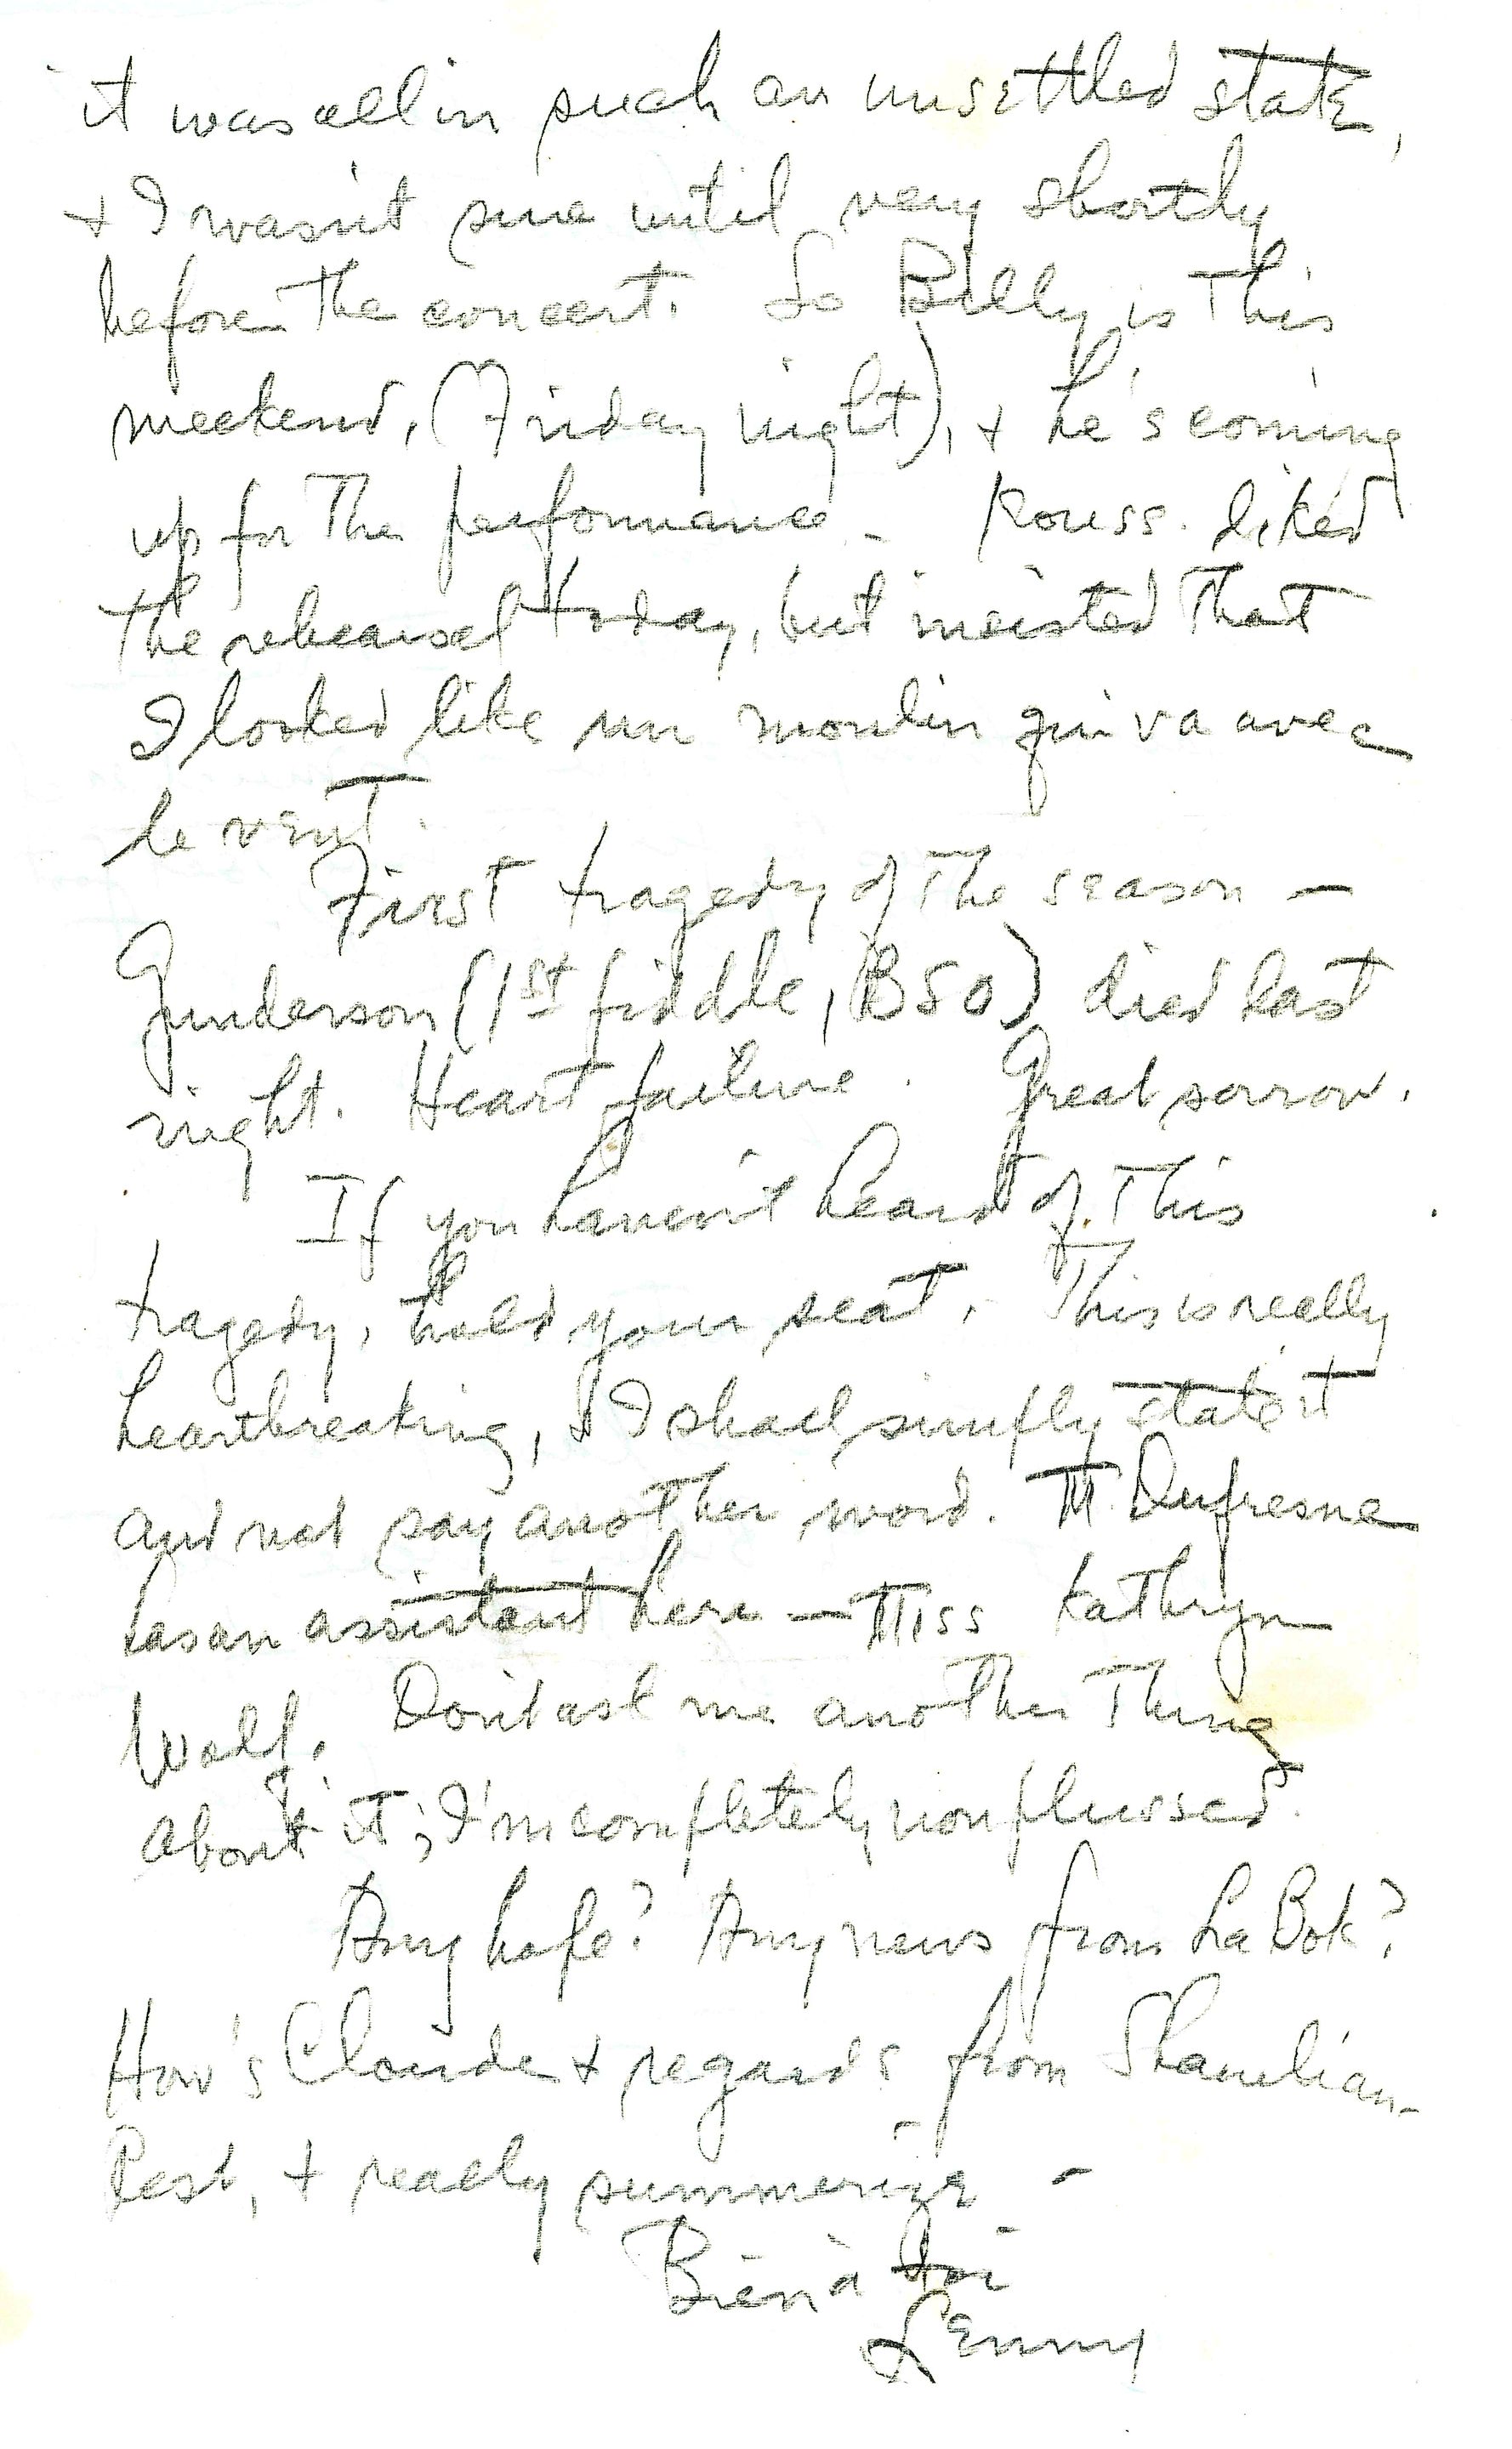 it was all in such an unsettled state,
+ I wasn't sure until very shortly
before the concert. So Billy is this
weekend, (Friday night), + he's coming
up for the performance - Kouss. liked
the rehearsal today, but insisted that
I looked like un moulin qui va avec
le vent.
First tragedy of the season —
Gunderson (1st fiddle, BSO) died last
night. Heart failure. Great sorrow.
If you haven't heard of this
tragedy, hold your seat. This is really
heartbreaking, & I shall simply state it
and not say another word. M. Dufresne
has an assistant here — Miss Kathryn
Wolf. Don't ask me another thing
about it; I'm completely nonplussed.
Any hope? Any news from La Bok?
How's Claude + regards from Shamlian -
Rest, + really summerize -
Bien à toi -
Lenny